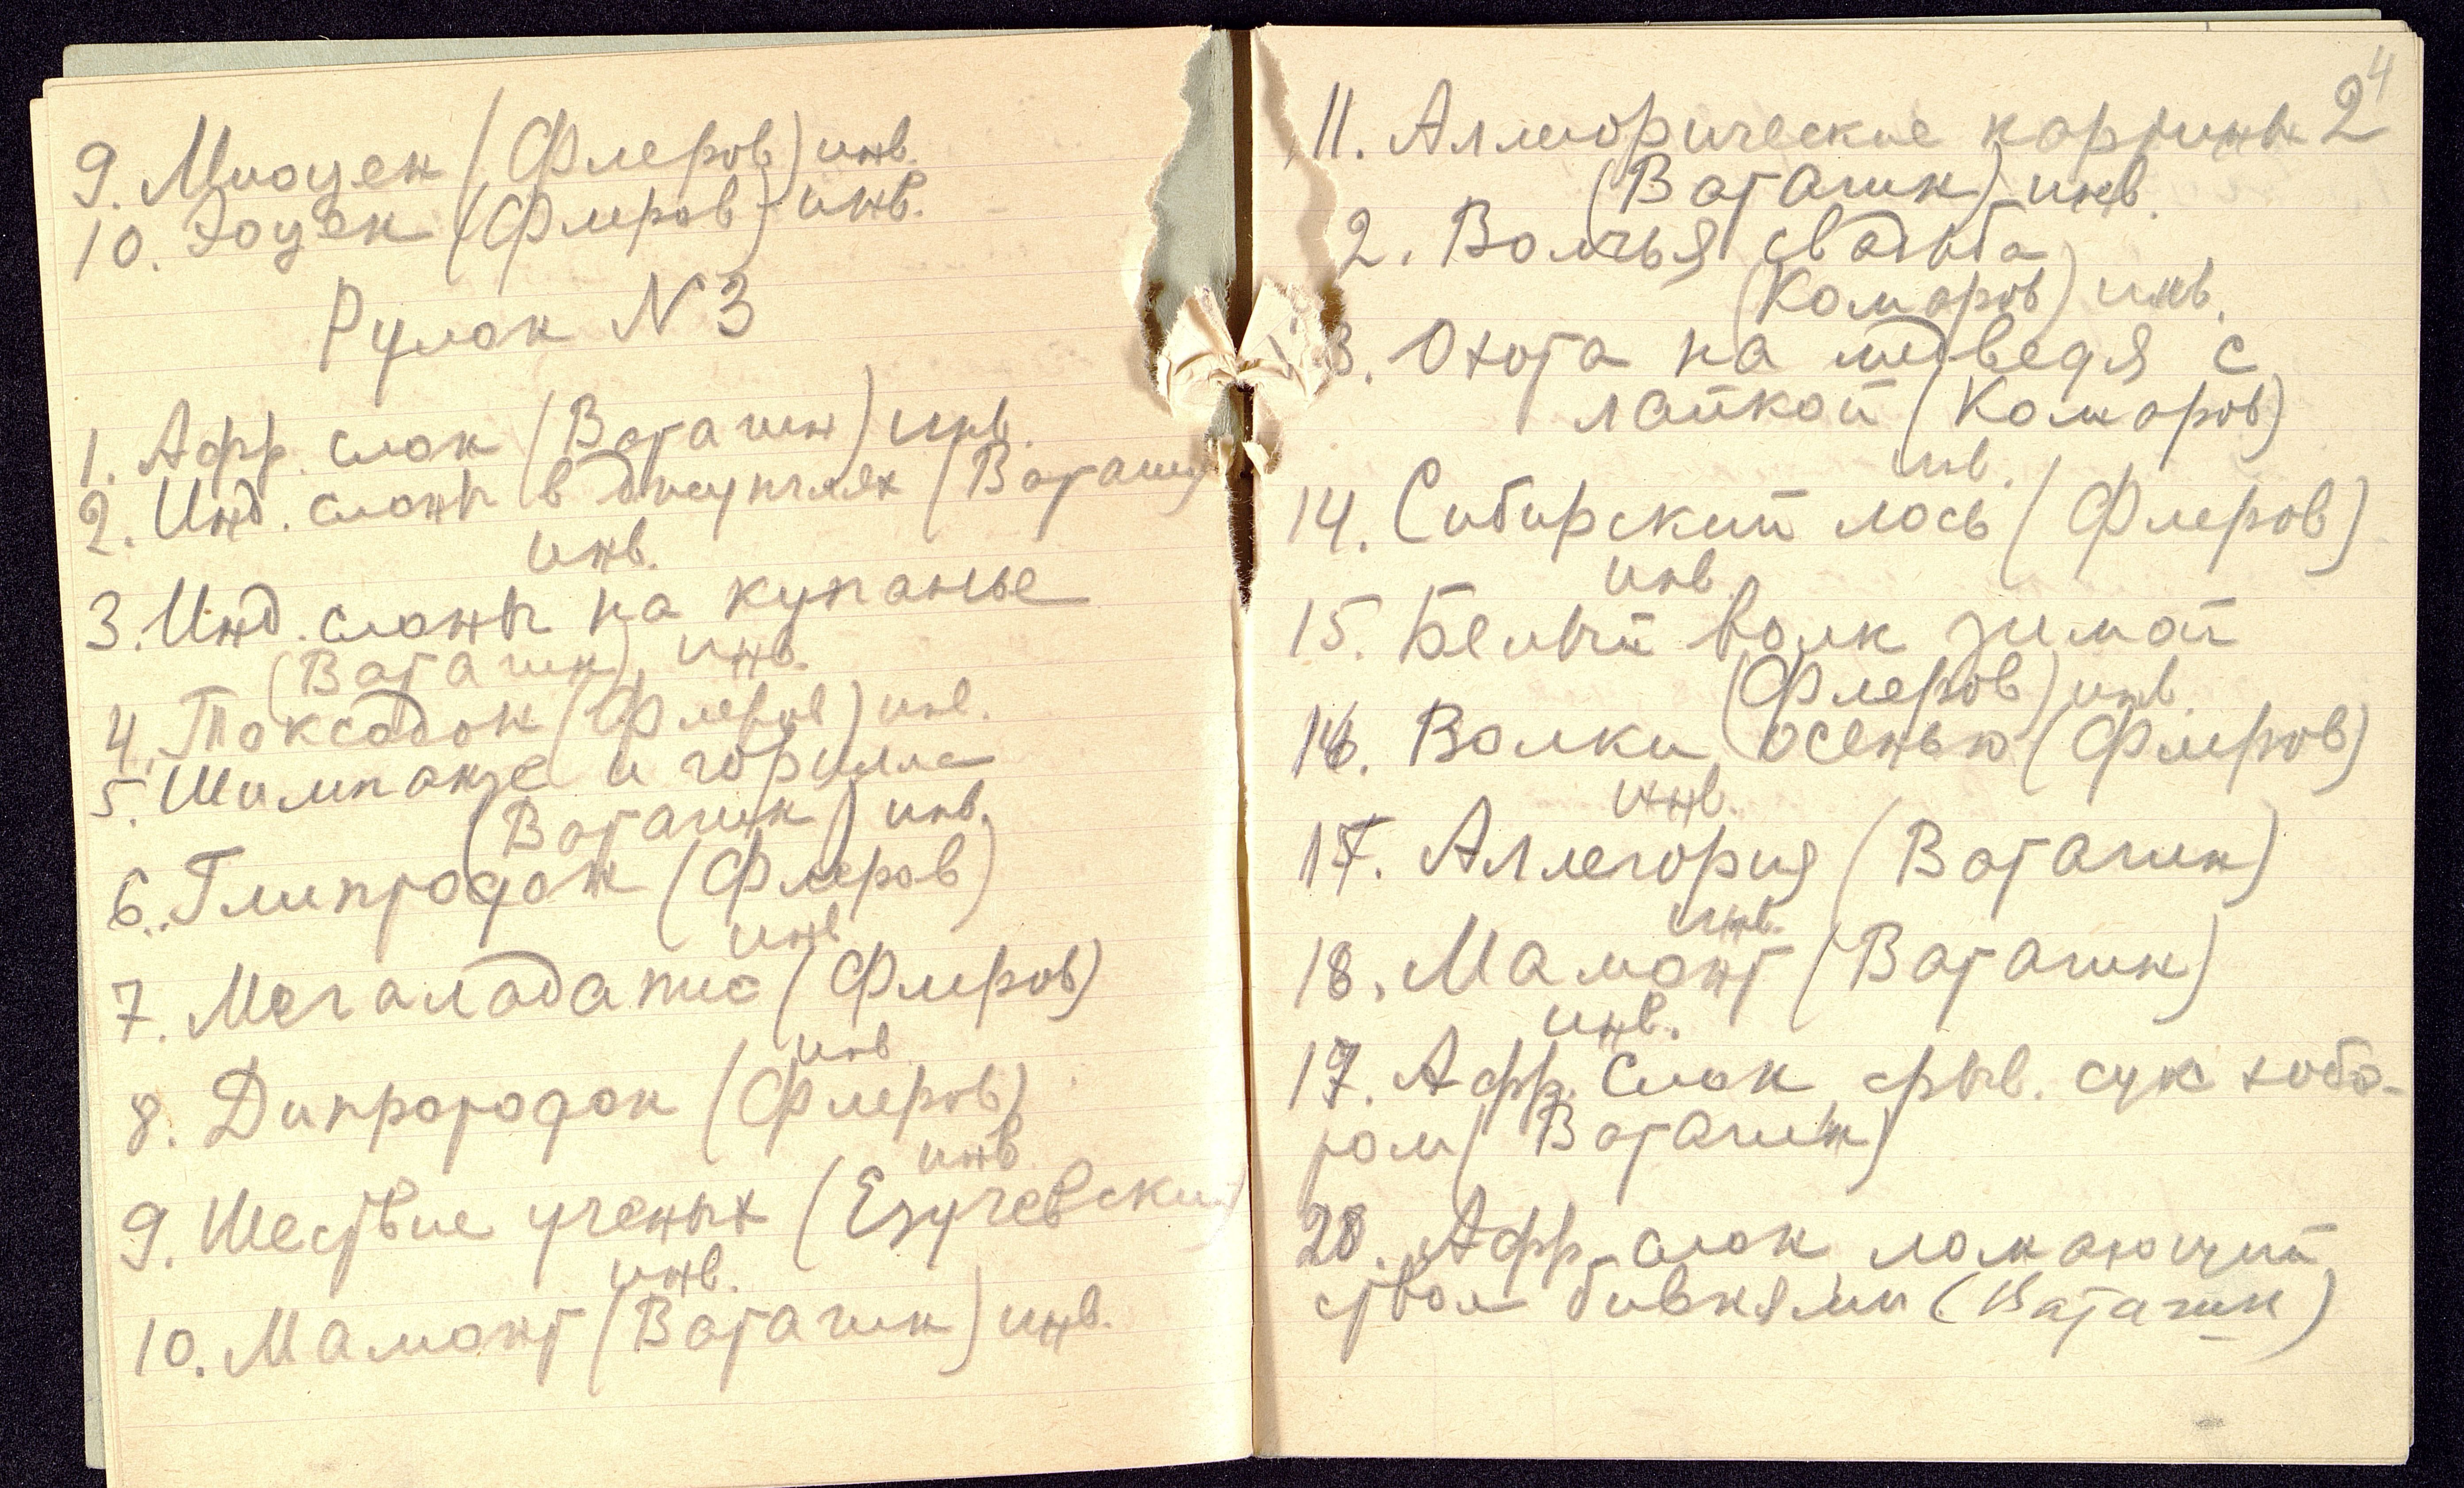 9. Миоцен (Флеров) инв.
10. Эоцен (Флеров) инв.
Рулон N 3
1. Афр. слон (Ватагин) инв.
2. Инд. слоны в джунглях (Ватагин)
инв.
3. Инд. слоны на купанье
(Ватагин) инв.
4. Токсодон (Флеров) инв.
5. Шимпанзе и горилла
(Ватагин) инв.
6. Глиптодон (Флеров)
инв
7. Мегаладапис (Флеров)
инв
8. Дипротодон (Флеров)
инв
9. Шествие ученых (Езучевский)
инв.
10. Мамонт (Ватагин) инв.
4
11. Аллегорические картины 2
(Ватагин) инв.
2. Волчья свадьба
(Комаров) инв.
3. Охота на медведя с
лайкой (Комаров)
инв.
14. Сибирский лось (Флеров)
инв.
15. Белый волк зимой
(Флеров) инв.
16. Волки осенью (Флеров)
инв.
17. Аллегория (Ватагин)
инв.
18. Мамонт (Ватагин)
инв.
19. Афр. Слон срыв. сук хобо-
том (Ватагин)
20. Афр. слон ломающий
ствол бивнями (Ватагин)